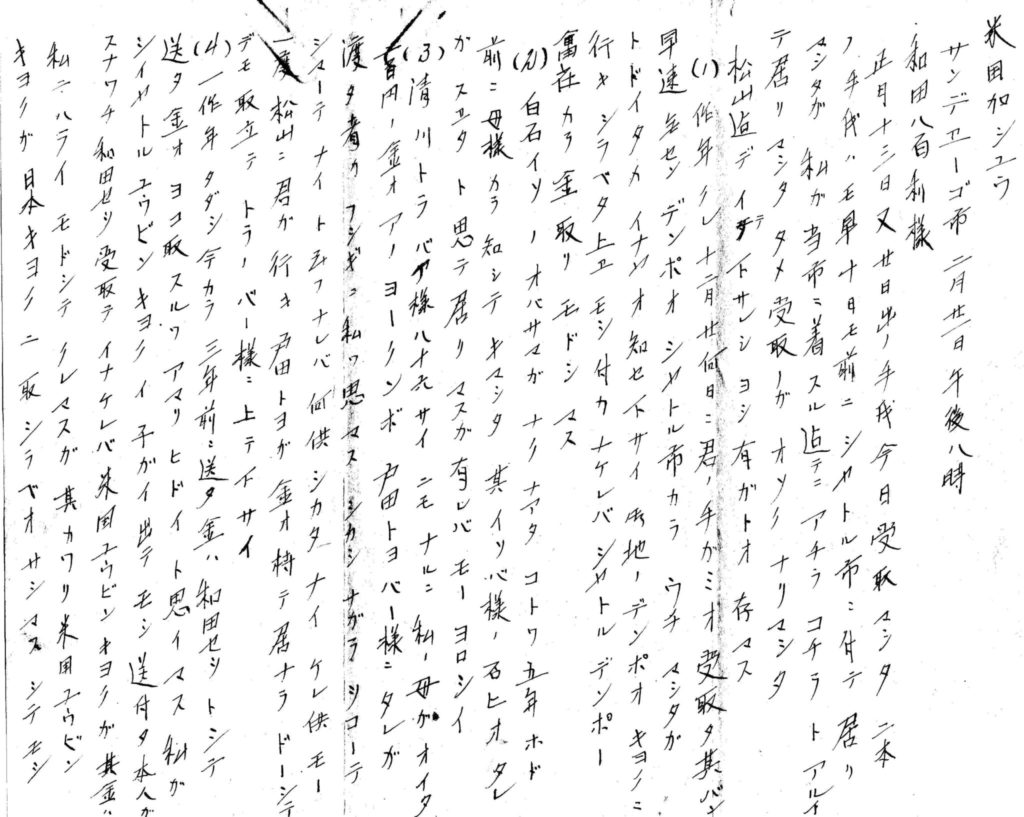 米国加シュウ
サンデエーゴ市 二月廿一日午後八時
和田八百利様
正月十三日又廿日出ノ手代今日受取マシタ 二本
ノ手代ハモ早十日モ前ニ シヤトル市ニ付テ 居リ
マシタガ 私が当市ニ着スル迠テニ アチラ コチラ ト アルイ
テ居リ マシタ タメ 受取ノガ オソク ナリマシタ
松山迠デ イテ下サレシ ヨシ 有ガトオ 存マス
(1) 作年クレ十二月廿何日ニ君ノ手がミオ 受取タ其バン
早速 センデンポオ シヤトル市カラ ウチ マシタガ
トドイタカ イナヤオ知セ下サイ 当地ノデンポオ キヨクニ
行キ シラベタ上エ モシ付カナケレバ シヤトル デンポー
カラ 金取リ モドシ マス
(2) 白石イソノオバサマガ ナクナアタ コトワ 五年ホド
前ニ母様カラ知シテ キマシタ 其イソバ様ノ石ヒオタレ
ガ スエタ ト思テ居リ マスガ 有レバ モー ヨロシイ
(3) 清川トラ バア様八十六サイ ニモ ナルニ 私ノ母ガ オイタ
百円ノ金オ アノ ヨークンボ 戸田トヨバー様ニ タレガ
渡タ者カ フシギニ 私ワ思マス シカシナガラ シコーテ
シマーテ ナイ ト云フナレバ 何供シカタナイ ケレ供モー
一度松山ニ君が行キ 戸田トヨが 金オ持テ居ナラ ドーシテ
デモ 取立テ トラノ バー様ニ 上テ下サイ
(4) 一作年 タダシ今カラ 三年前ニ送タ金ハ 和田セシ トシテ
送タ金オ ヨコ取スルワ アマリ ヒドイ ト思イマス 私が
シイヤトル ユウビンキヨク イ子がイ出テ モシ送付タ本人が
スナワチ 和田セシ受取テ イナケレバ 米国ユウビンキヨクが其金ハ
私ニハライ モドシテ クレマスガ 其カワリ 米国ユウビン
キヨクが 日本キヨクニ 取シラベオ サシマス シテモシ